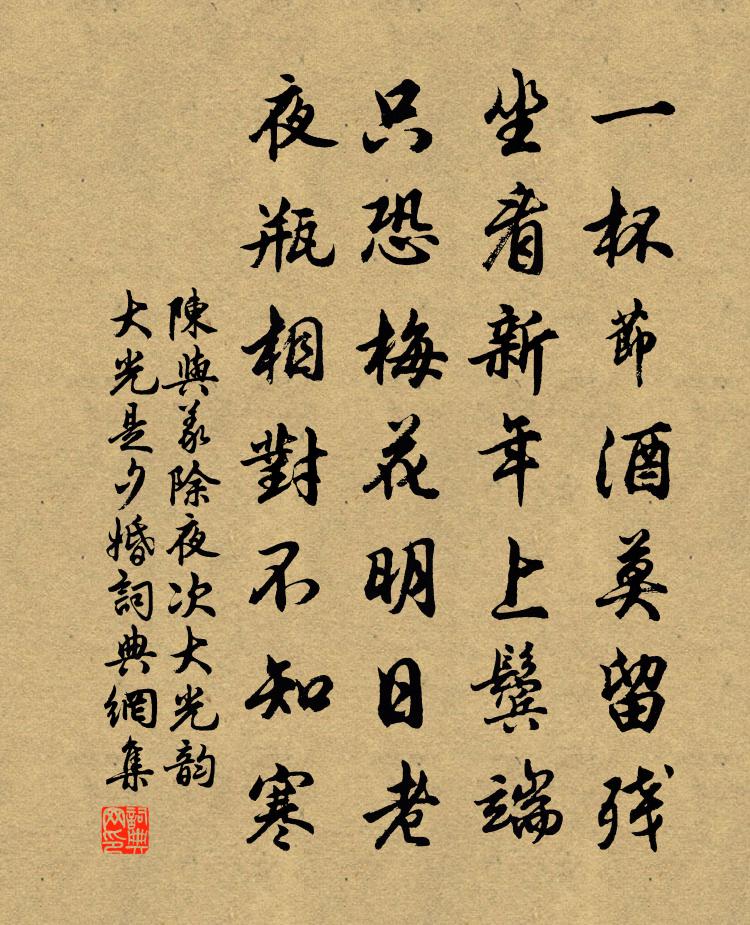 一杯節酒莫留残
坐看新年上鬢端
只恐梅花明日老
夜瓶相對不知寒
陳與義除夜次大光韵
大光是夕婚詞典網集
詞典网印